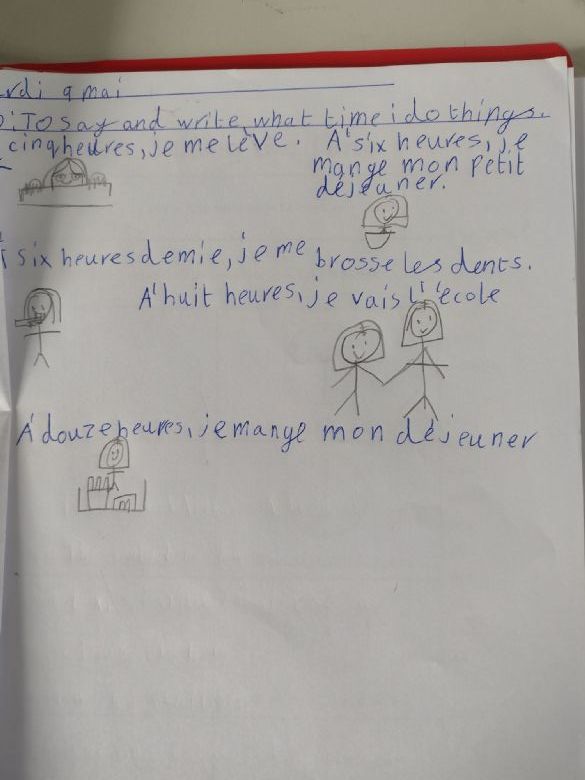 rdi 9 mai
: To say and write what time i do things.
cinq heures, je me lève. A' six heures, je
mange mon petit
déjeuner.
six heures demie, je me brosse les dents.
A' huit heures, je vais l'école
À douze heures, je mange mon déjeuner